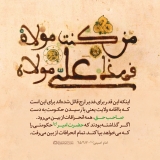 من کنت مولاه
فهذا علی مولاه
اینکه این قدر برای غدیر ارج قائل شده‌اند برای این است
که با اقامه ولایت یعنی با رسیدن حکومت به دست
صاحب حق، همه انحرافات از بین می‌رود.
اگر گذاشته بودند که حضرت امیر حکومتی را
که می‌خواهد برپا کند تمام انحرافات از بین می‌رفت.